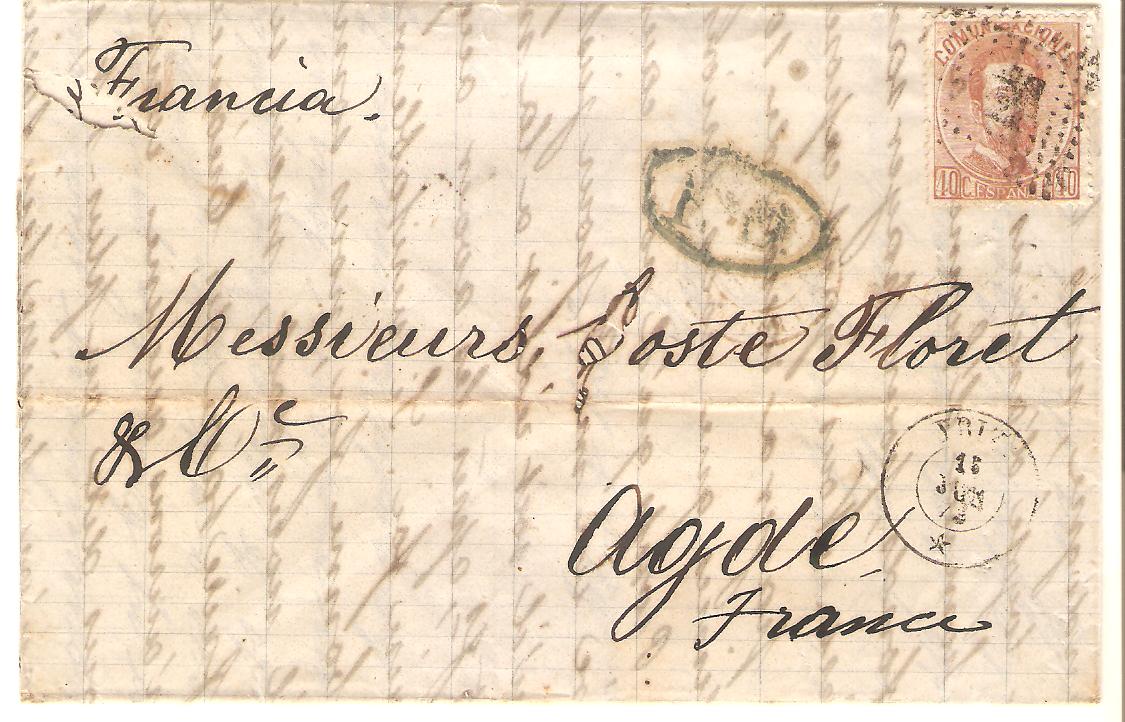 Francia.
COMUNICACIONES
40 C. ESPAÑA 40
P.D.
Messieurs, Coste Floret
& Cie
15
JUN
Agde,
France